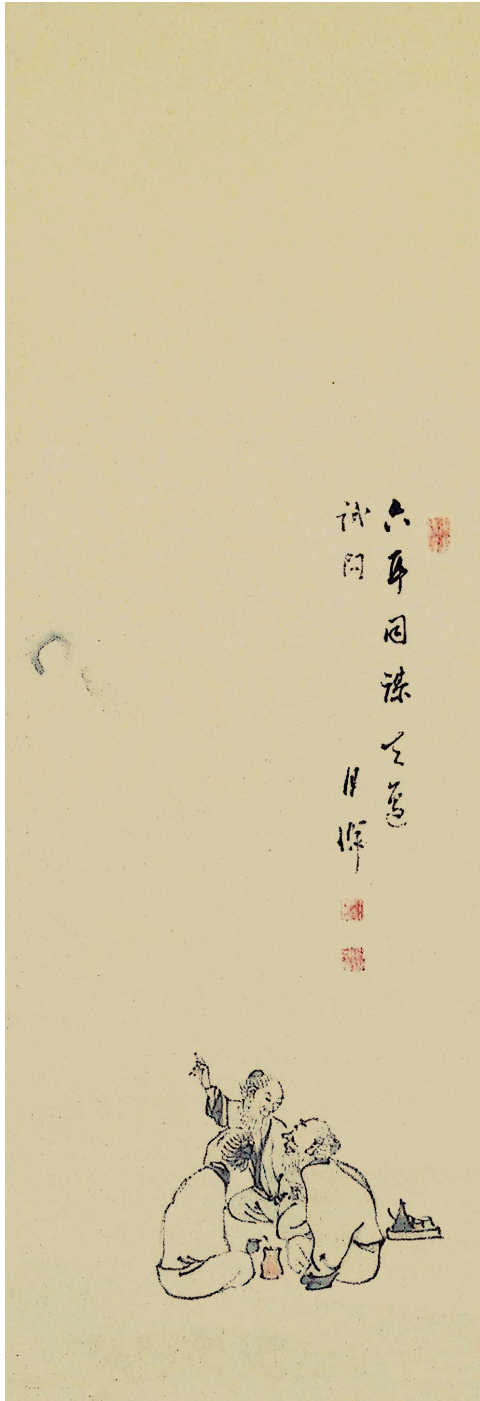 六耳同謀天邊
試問
月